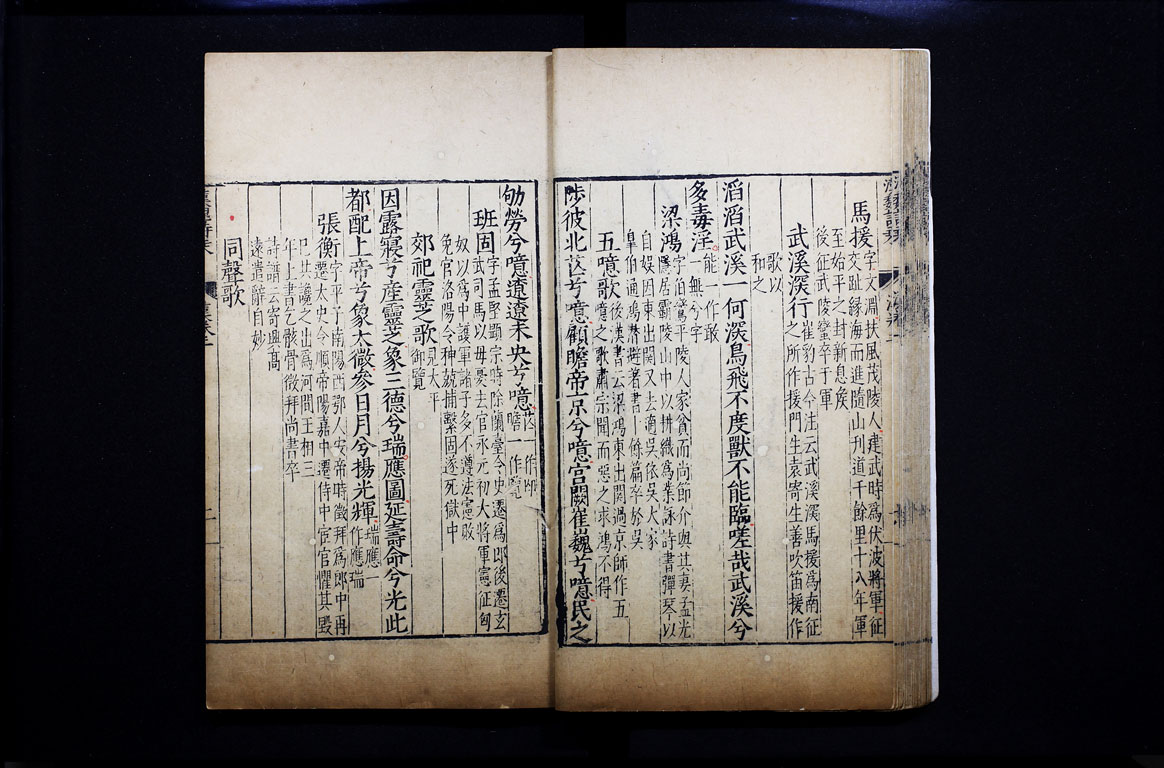 馬援字文淵扶風茂陵人建武時爲伏波將軍征
交趾緣海而進隨山刊道千餘里十八年軍
至始平之封新息矦
後征武陵蠻卒于軍
武溪深行崔豹古今注云武溪深馬援爲南征
之所作援門生袁寄生善吹笛援作
歌以
和之
滔滔武溪一何深鳥飛不度獸不能臨嗟哉武溪兮
多毒淫能一作敢
一無兮字
梁鴻字伯鸞平陵人家貧而尚節介與其妻孟光
隱居霸陵山中以耕織爲業詠詩書彈琴以
自娛因東出關又去適吳依吳大家
皐伯通鴻潛避著書十餘篇卒於吳
五噫歌後漢書云梁鴻東出關過京師作五
噫之歌肅宗聞而惡之求鴻不得
陟彼北芒兮噫顧瞻帝京兮噫宮闕崔巍兮噫民之
劬勞兮噫遼遼未央兮噫芒一作邙
瞻一作覽
班固字孟堅顯宗時除蘭臺令史遷爲郎後遷玄
武司馬以毋憂去官永元初大將軍憲征匈
奴以爲中護軍諸子多不遵法憲敗
免官洛陽令种兢捕繫固遂死獄中
郊祀靈芝歌見太平
御覽
因露寢兮產靈芝象三德兮瑞應圖延壽命兮光此
都配上帝兮象太微參日月兮揚光輝瑞應一
作應瑞
張衡字平子南陽西鄂人安帝時徵拜爲郎中再
遷太史令順帝陽嘉中遷侍中宦官懼其毀
巳共讒之出爲河間王相三
年上書乞骸骨徵拜尚書卒
詩譜云寄興高
遠遣辭自妙
同聲歌